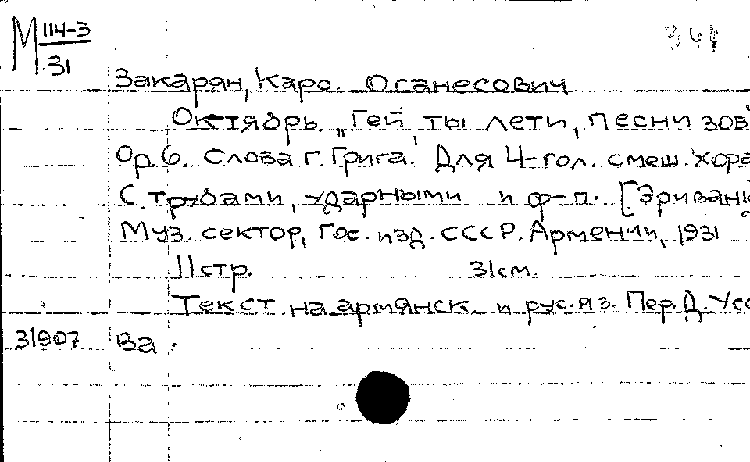 М 114-3
31
341
Закарян, Каро Осанесович
Октябрь. „Гей ты лети, песни зов
Op. 6. Слова Г. Грига. Для 4-гол. смеш. хора
с трубами, ударными и ф-п. [Эривань
Муз. сектор, Гос. изд. СССР. Армении, 1931
11 стр. 31 см.
Текст на армянск. и рус. яз. Пер. Д. Усо
31907 Ва